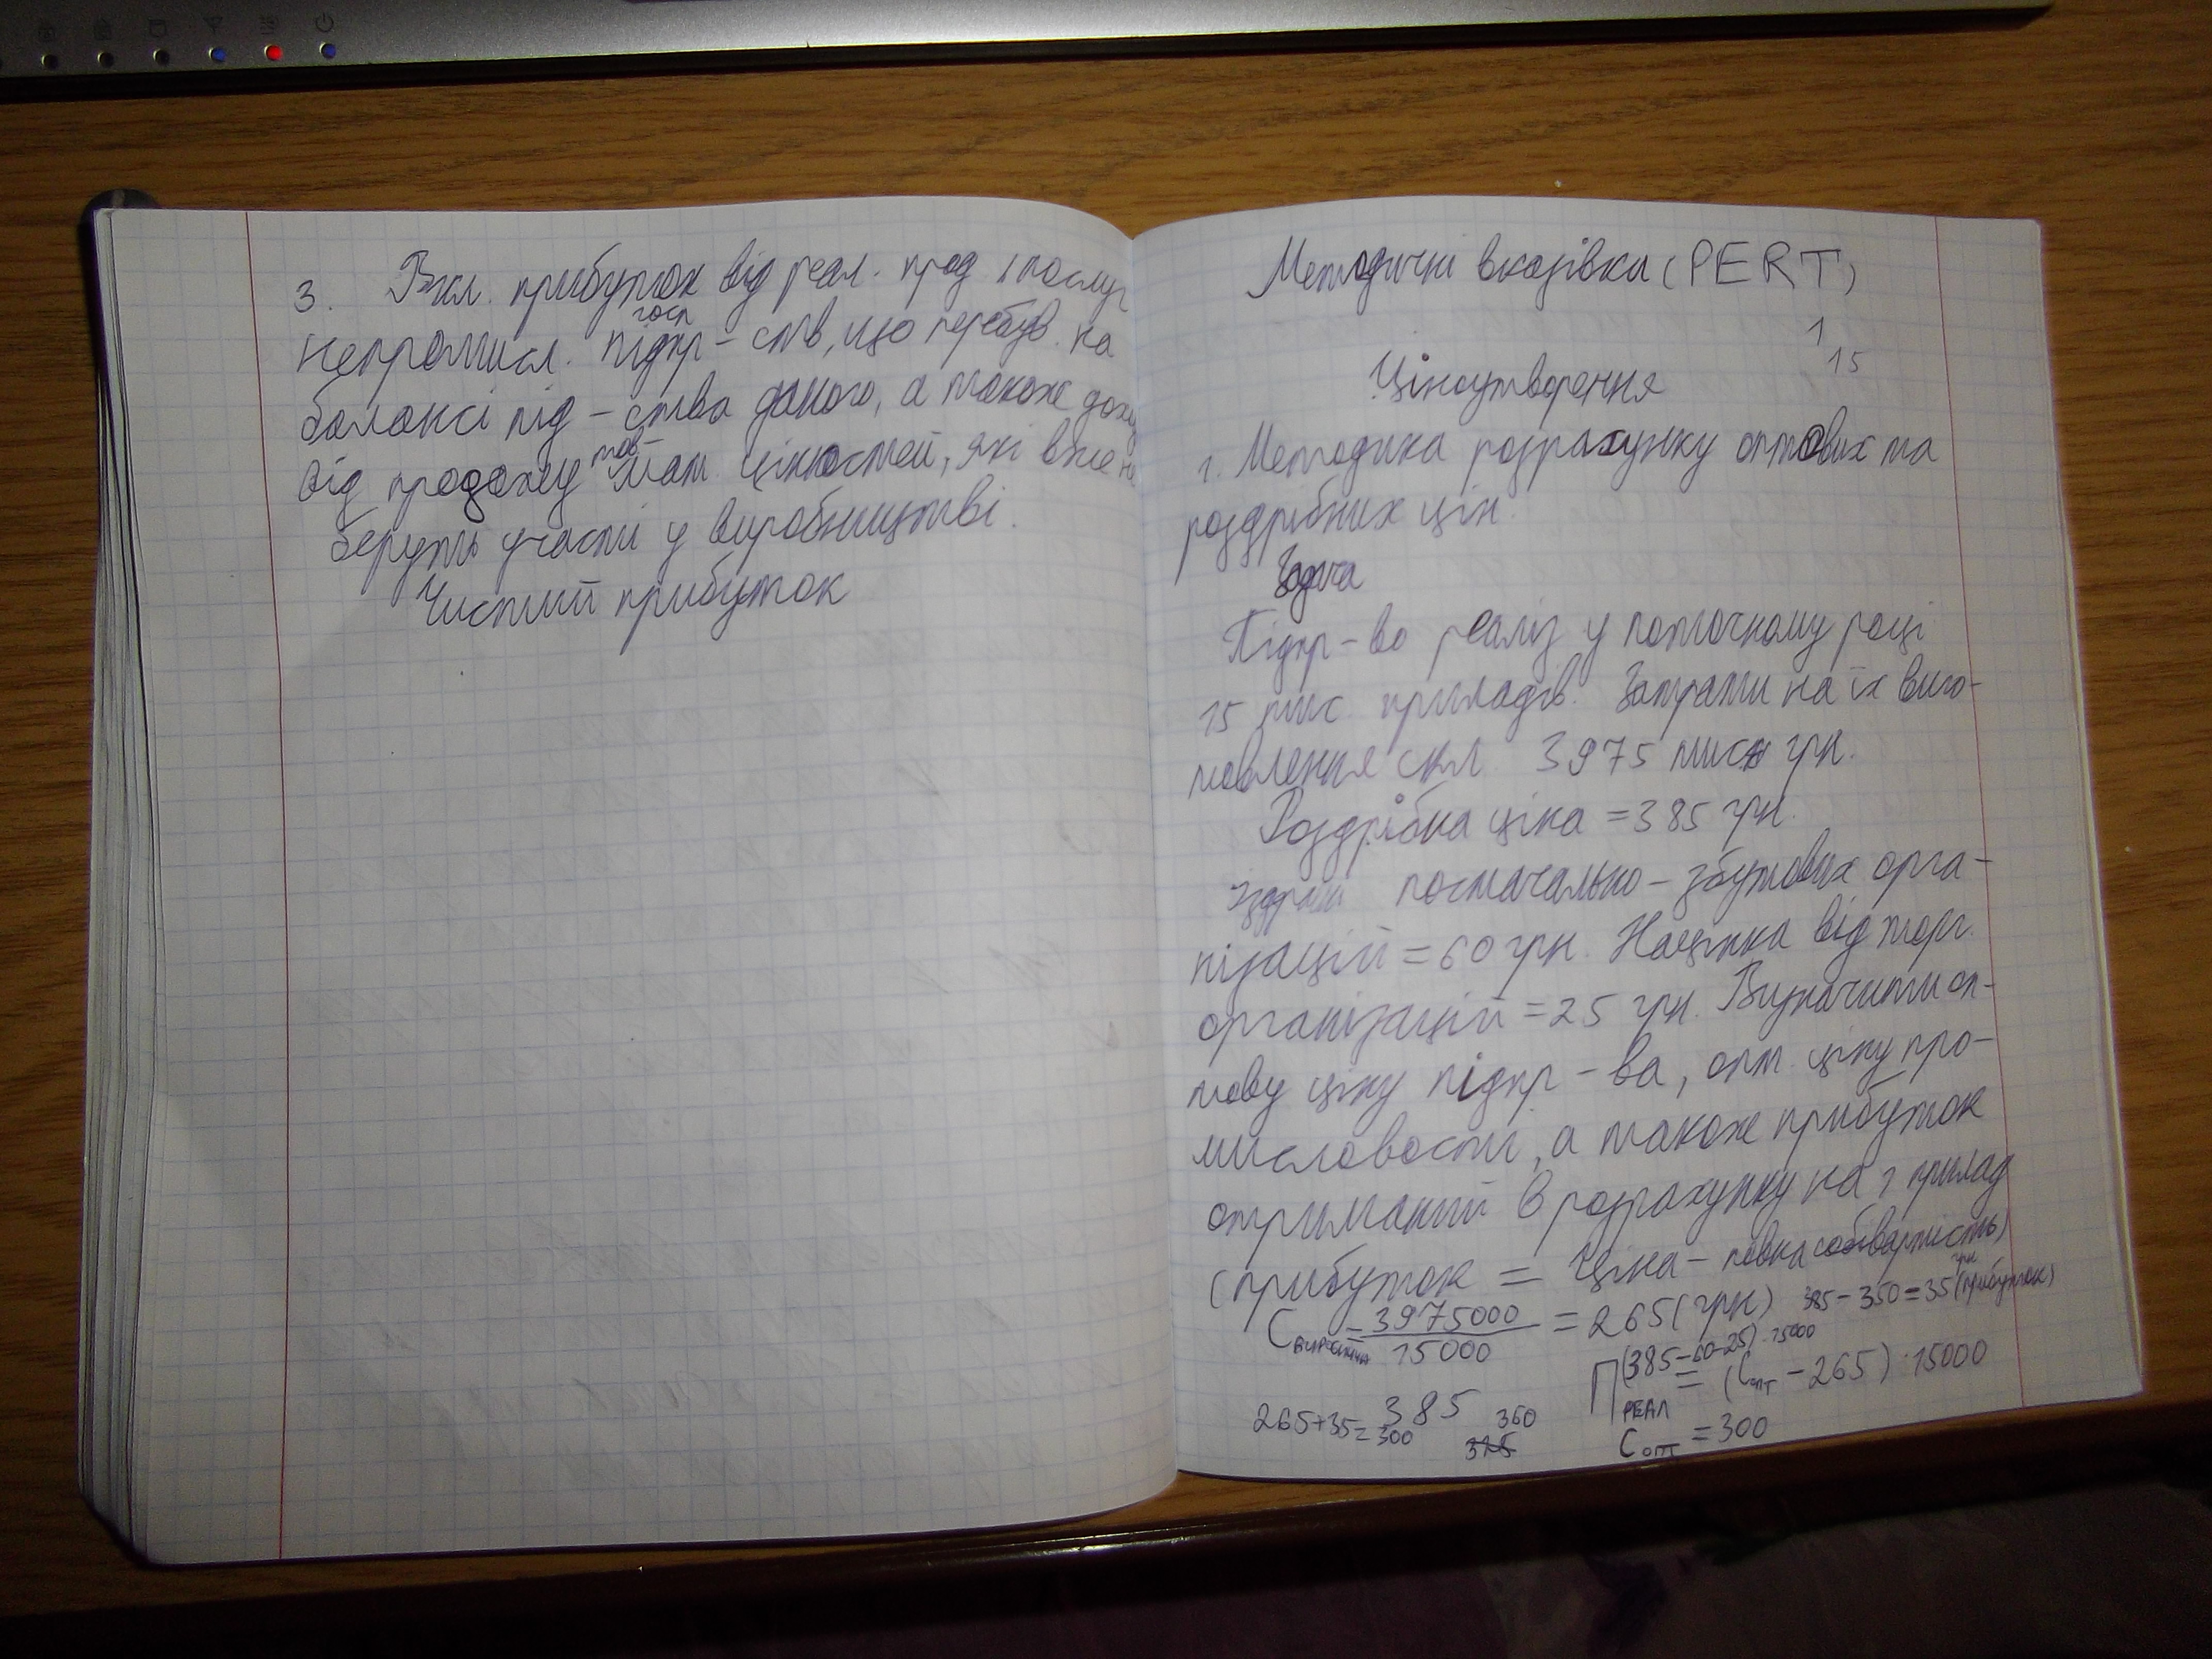 3. Вкл. прибуток від реал. прод і послуг
непромисл. госп підпр-ств, що перебув. на
балансі під-ства даного, а також дохід
від продажу тов мат. цінностей, які вже не
беруть участі у виробництві.
Чистий прибуток
Методичні вказівки (PERT)
1
15
Ціноутворення
1. Методика розрахунку оптових та
роздрібних цін.
Задача
Підпр-во реаліз у поточному році
15 тис. приладів. Затрати на їх виго-
товлення скл. 3975 тисн грн.
Роздрібна ціна = 385 грн.
постачально-збутових орга-
нізацій = 60 грн. Націнка від торг.
організацій = 25 грн. Визначити оп-
тову ціну підпр-ва, опт. ціну про-
мисловості, а також прибуток
отриманий в розрахунку на 1 прилад
(прибуток = Ціна - повна собівартість)
С виробнича = 3975000 / 15000 = 265 (грн) 385-350=35 грн (прибуток)
(385-60-25)·15000
П РЕАЛ = (Сопт - 265)·15000
265+35=300 385 360
325
Сопт = 300